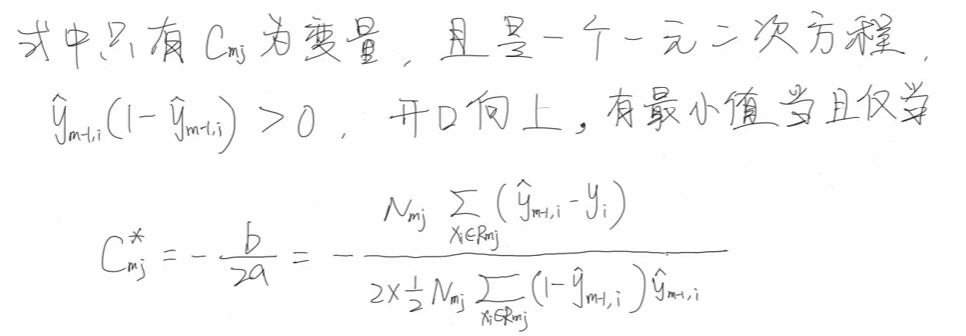 式中只有 C_{mj} 为变量,且是一个一元二次方程,
ŷ_{m-1,i}(1-ŷ_{m-1,i}) > 0,开口向上,有最小值当且仅当
C^*_{mj} = -\frac{b}{2a} = -\frac{N_{mj} \sum_{x_i∈R_{mj}} (ŷ_{m-1,i} - y_i)}{2×\frac{1}{2} N_{mj} \sum_{x_i∈R_{mj}} (1-ŷ_{m-1,i}) ŷ_{m-1,i}}